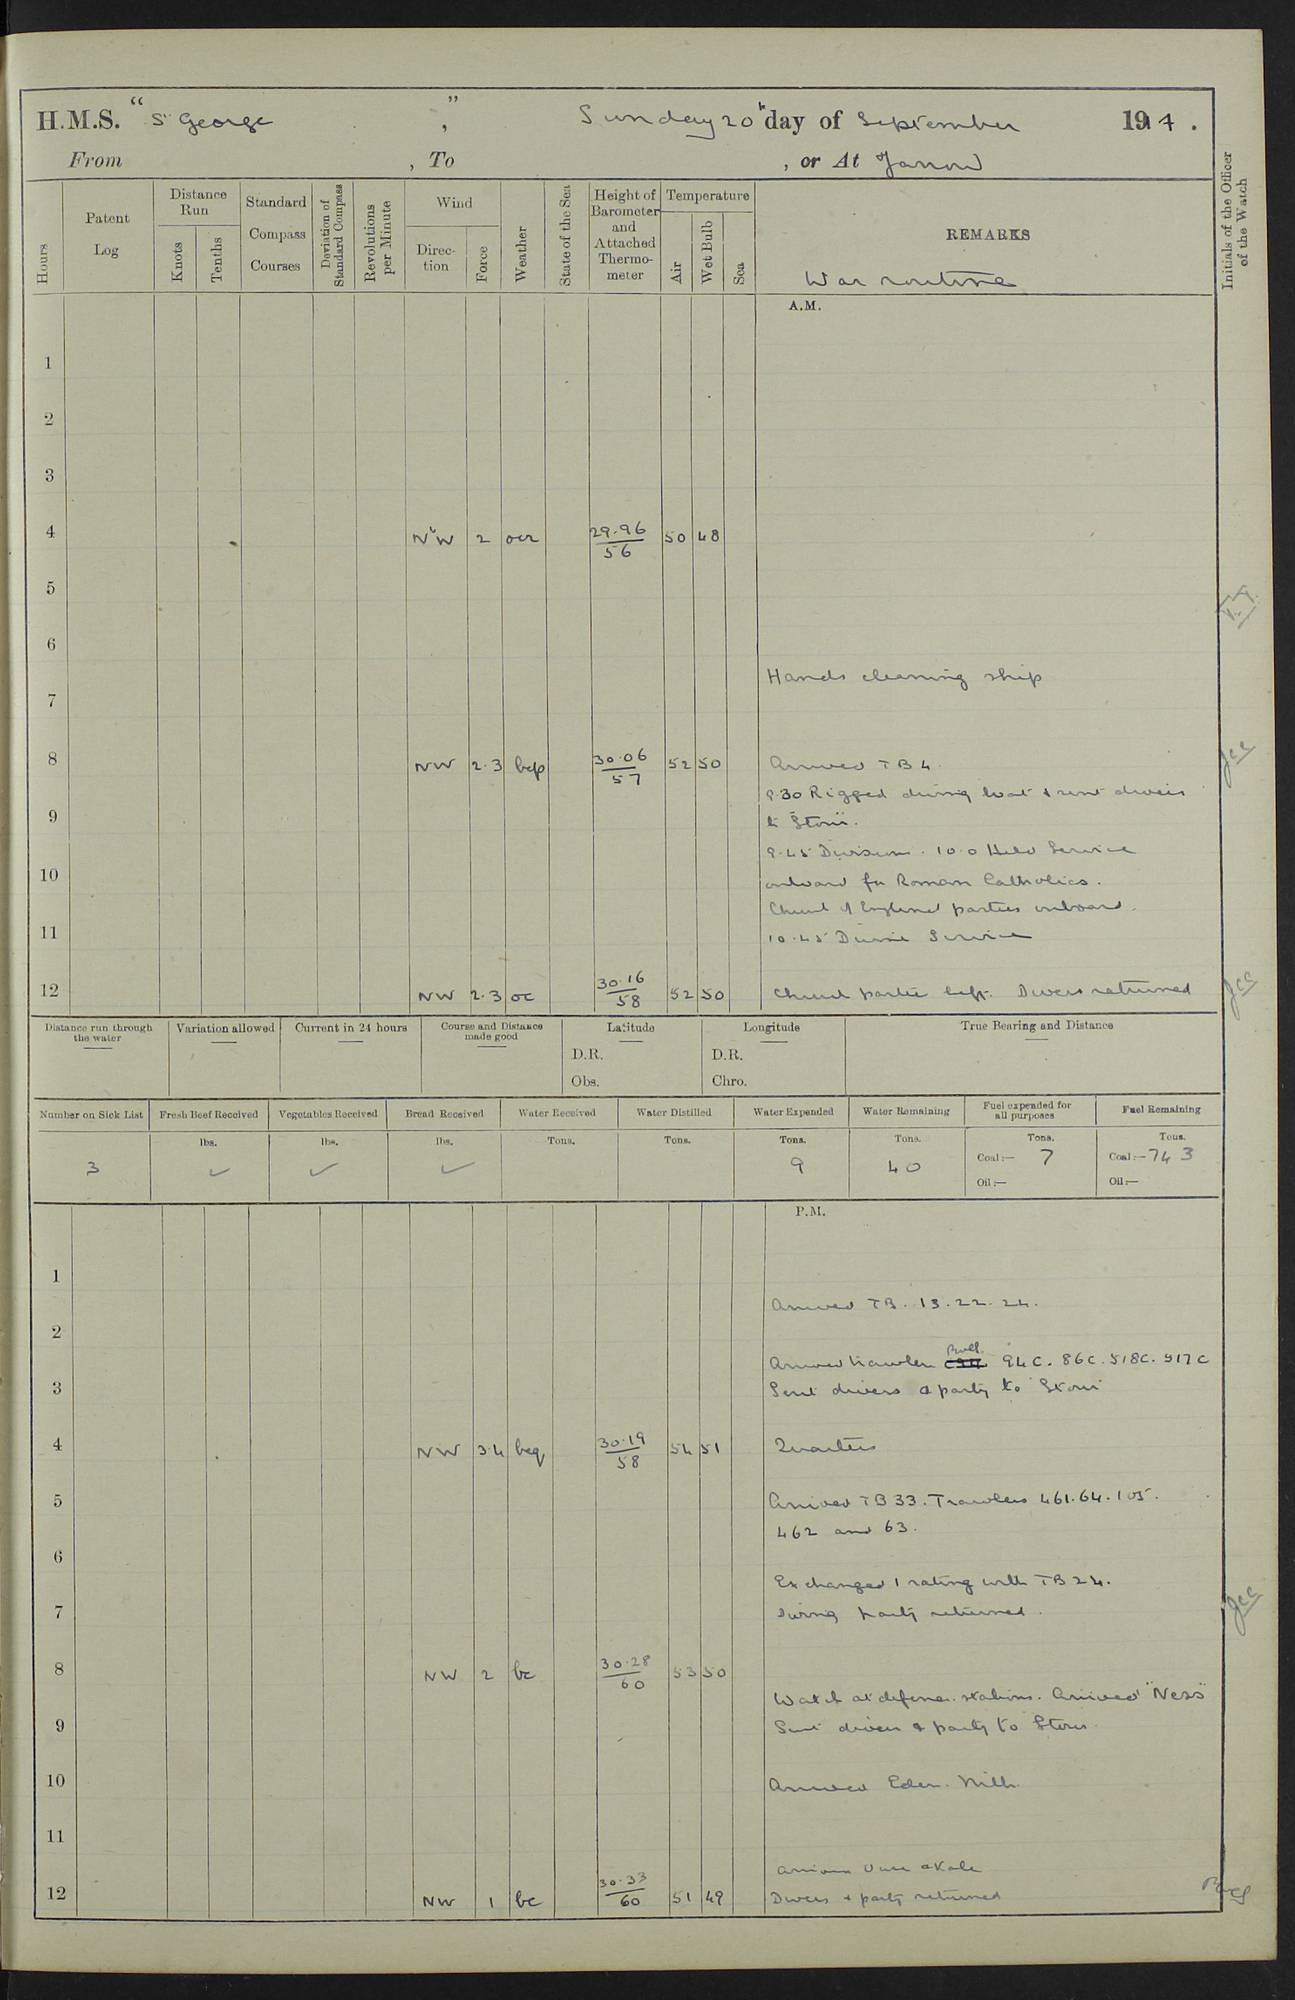 H.M.S. "St George", Sunday 20th day of September 1914.
From , To , or At Jarrow
Hours
Patent Log
Distance Run
Knots
Tenths
Standard Compass Courses
Deviation of Standard Compass
Revolutions per Minute
Wind
Direction
Force
Weather
State of the Sea
Height of Barometer and Attached Thermometer
Temperature
Air
Wet Bulb
Sea
REMARKS
War routine
Initials of the Officer of the Watch
A.M.
1
2
3
4 NW 2 ocr 29.96/56 50 48
5
6
Hands cleaning ship
7
8 NW 2.3 bcp 30.06/57 52 50 Arrived TB 4.
9.30 Rigged diving boat & sent divers
9 to "Stour".
9.45 Divisions. 10.0 Held Service
10 onboard for Roman Catholics.
Church of England parties onboard.
11 10.45 Divine Service
12 NW 2.3 oc 30.16/58 52 50 Church parties left. Divers returned
Distance run through the water
Variation allowed
Current in 24 hours
Course and Distance made good
Latitude
D.R.
Obs.
Longitude
D.R.
Chro.
True Bearing and Distance
Number on Sick List
Fresh Beef Received
Vegetables Received
Bread Received
Water Received
Water Distilled
Water Expended
Water Remaining
Fuel expended for all purposes
Fuel Remaining
lbs. lbs. lbs. Tons. Tons. Tons. Tons. Tons. Tons.
3 ✓ ✓ ✓ 9 40 Coal:— 7 Coal:— 743
Oil:— Oil:—
P.M.
1
Arrived TB. 13. 22. 24.
2
Arrived trawlers 94C. 86C. 518C. 517C
3 Sent divers & party to Stour
4 NW 3.4 bcq 30.19/58 54 51 Quarters
5 Arrived TB 33. Trawlers 461. 64. 105.
462 and 63.
6
Exchanged 1 rating with TB 24.
7 Diving party returned.
8 NW 2 bc 30.28/60 53 50
Watch at defence stations. Arrived "Ness"
9 Sent divers & party to Stour.
10 Arrived Eden. Nith.
11
Arrived Ouse & Kale
12 NW 1 bc 30.33/60 51 49 Divers & party returned